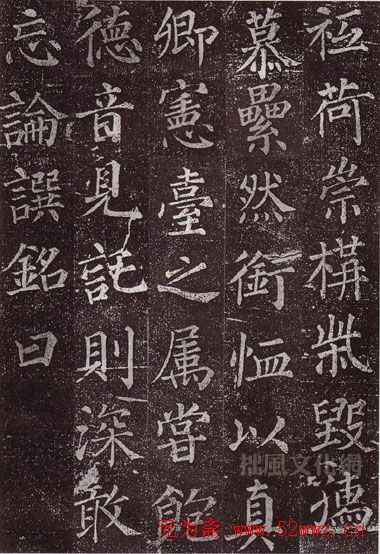 祗荷崇構柴毀孺
慕纍然銜恤以真
卿憲臺之属嘗飽
德音見託則深敢
忘論譔銘曰
風文化網
无为斋 www.52wwz.cn